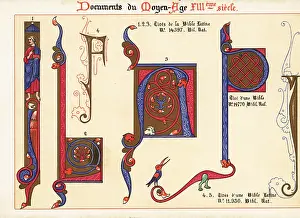 Documents du Moyen-Age XIIIème siècle.
1.2.3. Tirés de la Bible Latine
Nº. 14397. Bibl. Nat.
4
3
2
Tiré d'une Bible
Nº. 16770 Bibl. Nat.
4.5. Tirés d'une Bible Latine
Nº. 11.930. Bibl. Nat.